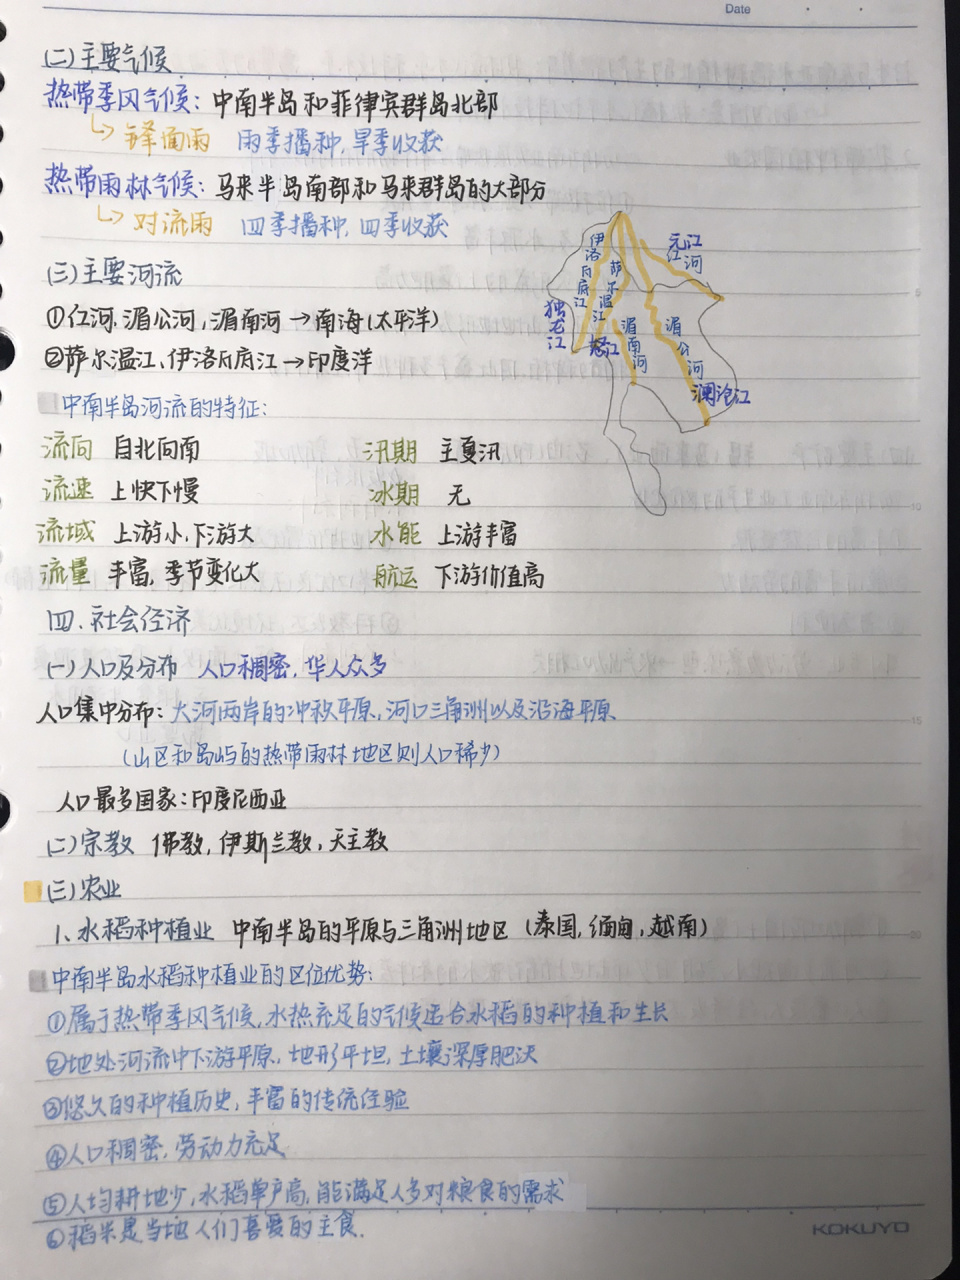 Date
(二)主要气候
热带季风气候：中南半岛和菲律宾群岛北部
↳ 锋面雨 雨季播种，旱季收获
热带雨林气候：马来半岛南部和马来群岛的大部分
↳ 对流雨 四季播种，四季收获
(三)主要河流
①红河、湄公河，湄南河→南海(太平洋)
②萨尔温江、伊洛瓦底江→印度洋
伊洛瓦底江
独龙江
萨尔温江
怒江
湄南河
湄公河
澜沧江
元江
红河
中南半岛河流的特征：
流向 自北向南 汛期 主夏汛
流速 上快下慢 冰期 无
流域 上游小，下游大 水能 上游丰富
流量 丰富，季节变化大 航运 下游价值高
四、社会经济
(一)人口及分布 人口稠密，华人众多
人口集中分布：大河两岸的冲积平原、河口三角洲以及沿海平原
(山区和岛屿的热带雨林地区则人口稀少)
人口最多国家：印度尼西亚
(二)宗教 佛教，伊斯兰教，天主教
(三)农业
1、水稻种植业 中南半岛的平原与三角洲地区(泰国，缅甸，越南)
中南半岛水稻种植业的区位优势：
①属于热带季风气候，水热充足的气候适合水稻的种植和生长
②地处河流中下游平原，地形平坦，土壤深厚肥沃
③悠久的种植历史，丰富的传统经验
④人口稠密，劳动力充足
⑤人均耕地少，水稻单产高，能满足人多对粮食的需求
⑥稻米是当地人们喜爱的主食.
KOKUYO